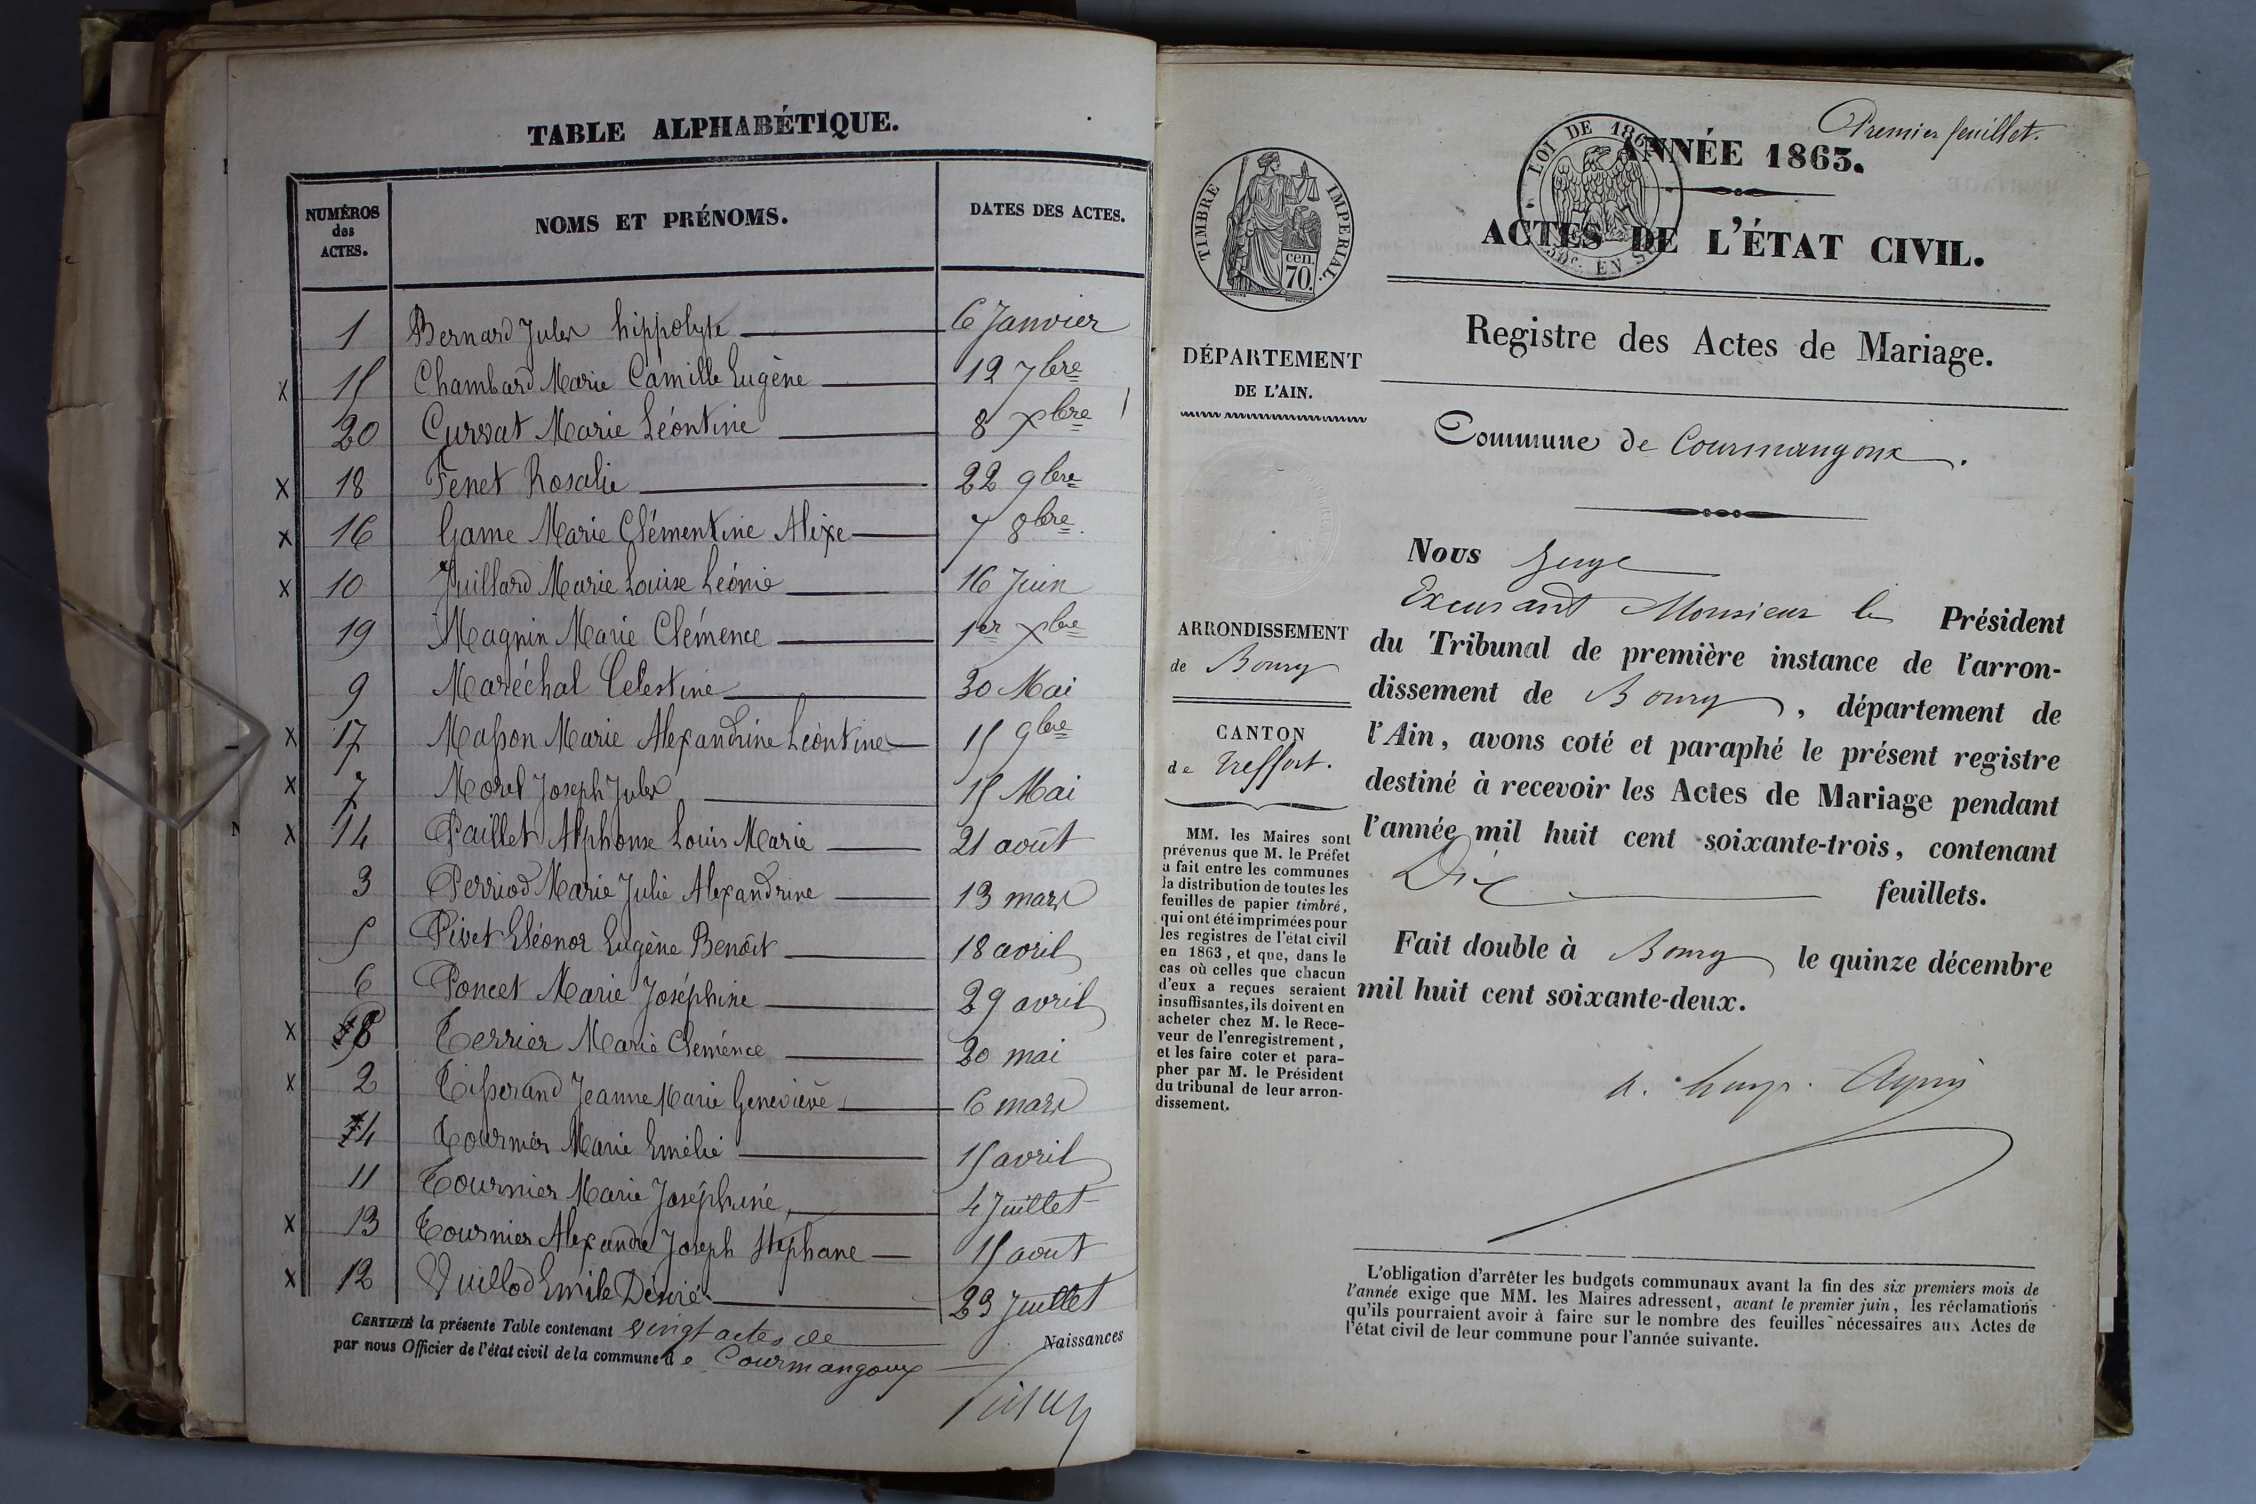 TABLE ALPHABÉTIQUE.
NUMÉROS
des
ACTES.
NOMS ET PRÉNOMS.
DATES DES ACTES.
1 Bernard Jules hippolyte 6 Janvier
x 15 Chambard Marie Camille Eugène 12 7bre
20 Curvat Marie Léontine 8 Xbre
x 18 Fenet Rosalie 22 9bre
x 16 Game Marie Clémentine Alixe 7 8bre.
x 10 Juillard Marie Louise Léonie 16 Juin
19 Magnin Marie Clémence 1er Xbre
9 Maréchal Celestine 30 Mai
x 17 Masson Marie Alexandrine Léontine 15 9bre
x 7 Morel Joseph Jules 15 Mai
x 14 Paillet Alphonse Louis Marie 21 août
3 Perriod Marie Julie Alexandrine 13 mars
5 Pivet Eléonor Eugène Benoît 18 avril
6 Poncet Marie Joséphine 29 avril
x 8 Terrier Marie Clemence 20 mai
x 2 Tisserand Jeanne Marie Geneviève 6 mars
4 Tournier Marie Emélie 15 avril
11 Tournier Marie Joséphine 4 Juillet
x 13 Tournier Alexandre Joseph Stéphane 15 août
x 12 Vuillod Emile Désiré 23 Juillet
CERTIFIÉ la présente Table contenant vingt actes de Naissances
par nous Officier de l'état civil de la commune de Courmangoux
Premier feuillet.
LOI DE 186
ANNÉE 1863.
TIMBRE IMPERIAL.
cen.
70.
ACTES DE L'ÉTAT CIVIL.
EN S
Registre des Actes de Mariage.
DÉPARTEMENT
DE L'AIN.
Commune de Courmangoux.
ARRONDISSEMENT
de Bourg
CANTON
de Treffort.
MM. les Maires sont
prévenus que M. le Préfet
a fait entre les communes
la distribution de toutes les
feuilles de papier timbré,
qui ont été imprimées pour
les registres de l'état civil
en 1863, et que, dans le
cas où celles que chacun
d'eux a reçues seraient
insuffisantes, ils doivent en
acheter chez M. le Rece-
veur de l'enregistrement,
et les faire coter et para-
pher par M. le Président
du tribunal de leur arron-
dissement.
Nous Juge
Excusant Monsieur le Président
du Tribunal de première instance de l'arron-
dissement de Bourg, département de
l'Ain, avons coté et paraphé le présent registre
destiné à recevoir les Actes de Mariage pendant
l'année mil huit cent soixante-trois, contenant
Dix feuillets.
Fait double à Bourg le quinze décembre
mil huit cent soixante-deux.
L'obligation d'arrêter les budgets communaux avant la fin des six premiers mois de
l'année exige que MM. les Maires adressent, avant le premier juin, les réclamations
qu'ils pourraient avoir à faire sur le nombre des feuilles nécessaires aux Actes de
l'état civil de leur commune pour l'année suivante.